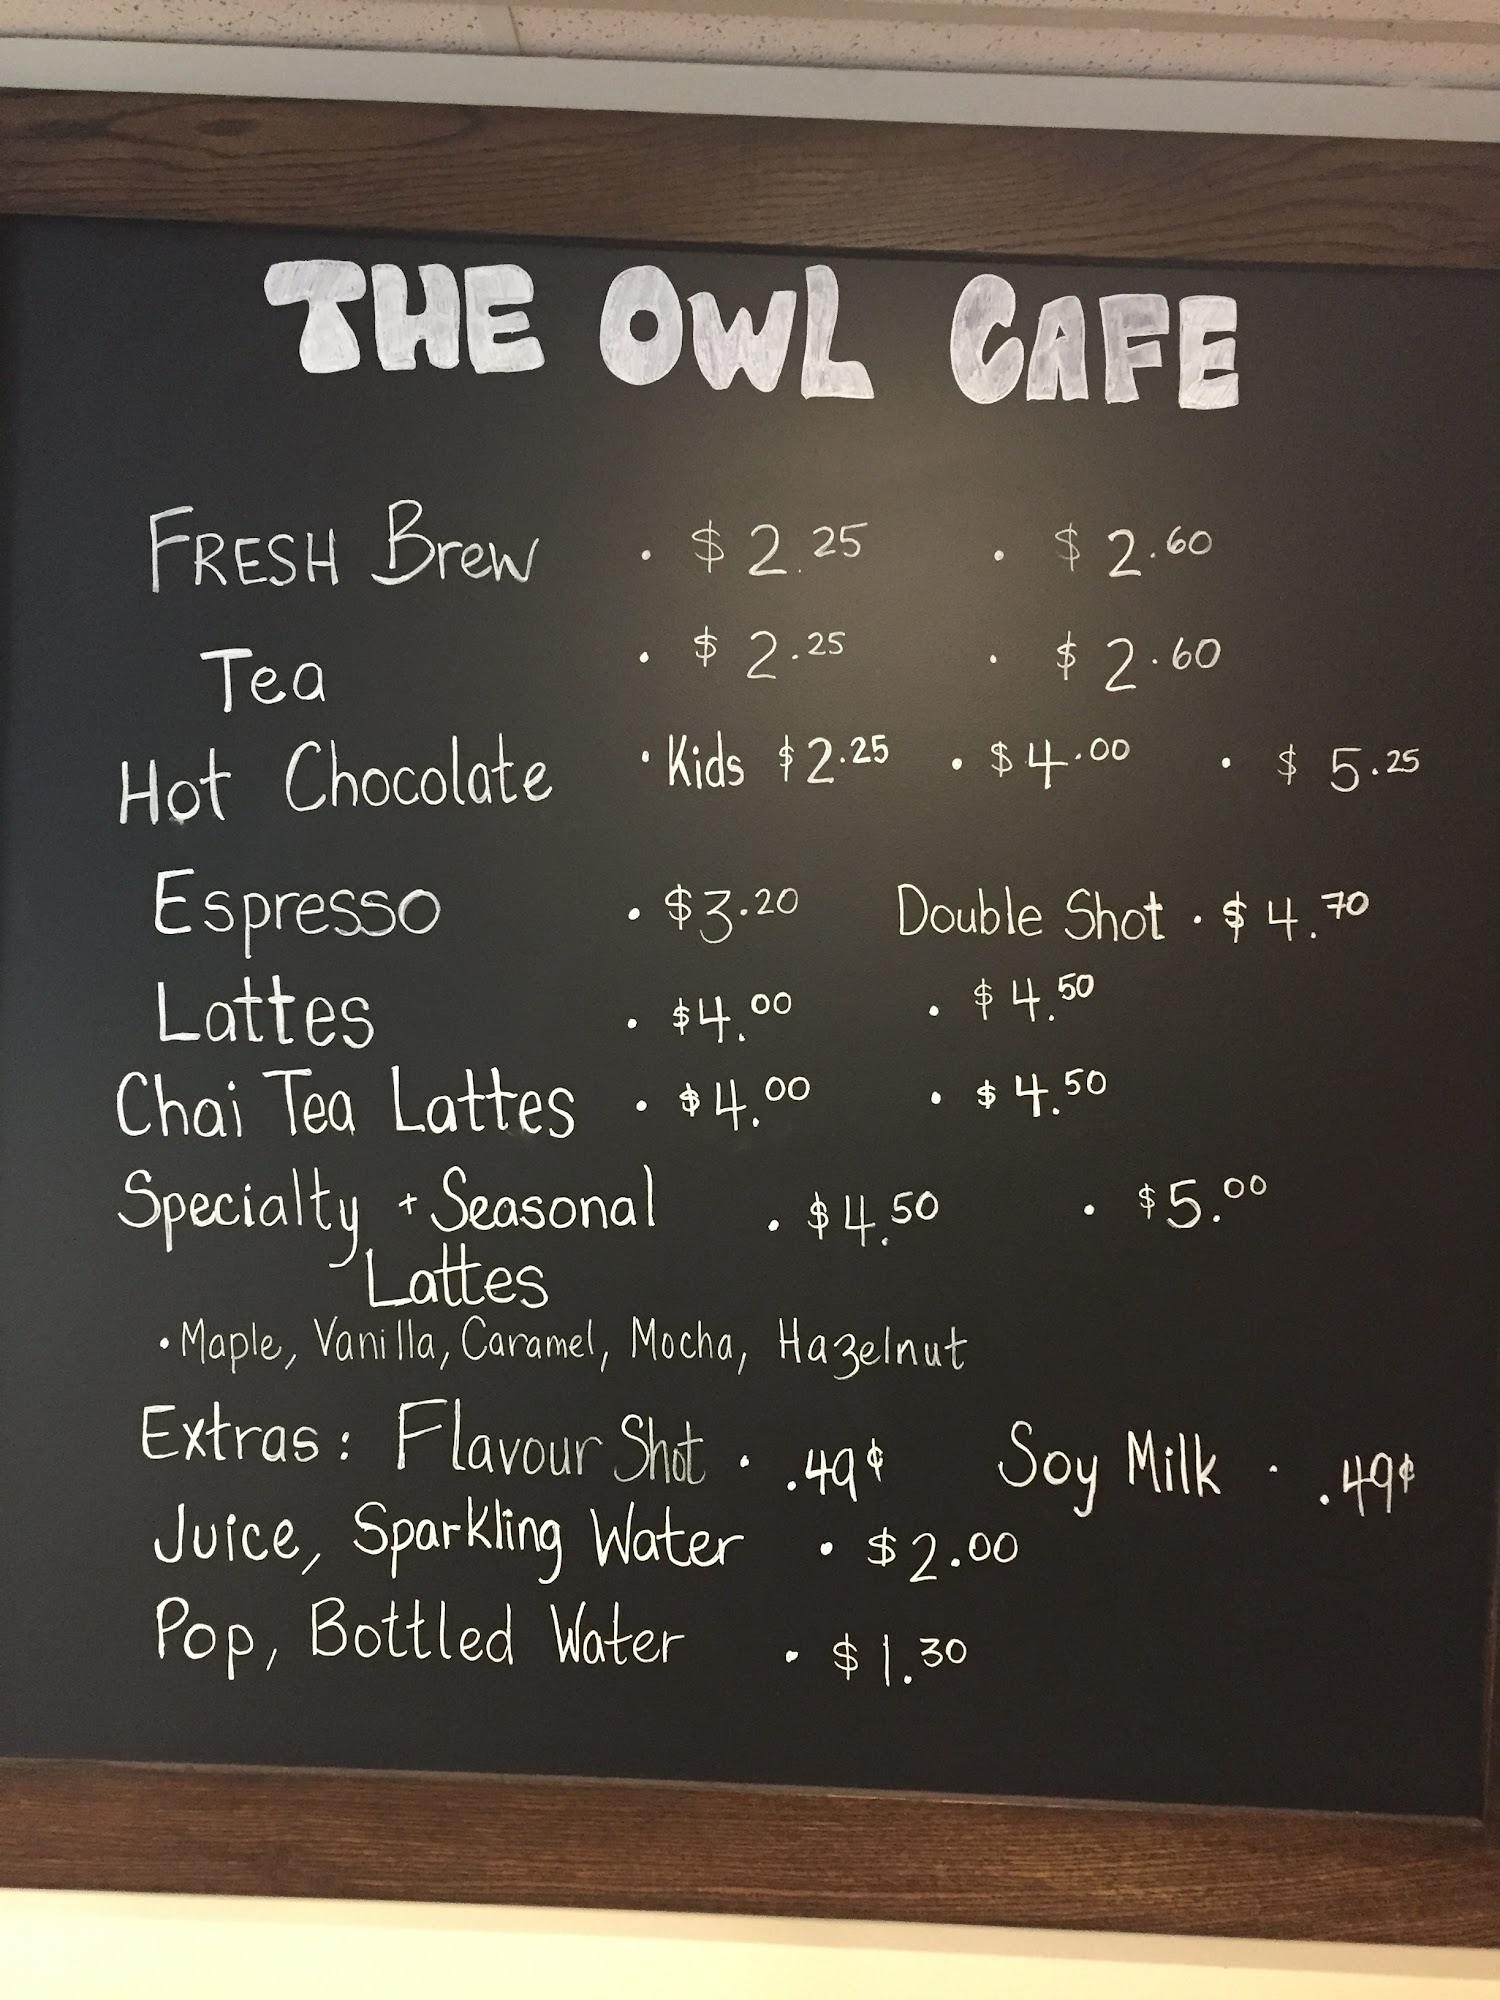 THE OWL CAFE
FRESH Brew • $2.25 • $2.60
Tea • $2.25 • $2.60
Hot Chocolate • Kids $2.25 • $4.00 • $5.25
Espresso • $3.20 Double Shot • $4.70
Lattes • $4.00 • $4.50
Chai Tea Lattes • $4.00 • $4.50
Specialty + Seasonal • $4.50 • $5.00
Lattes
• Maple, Vanilla, Caramel, Mocha, Hazelnut
Extras: Flavour Shot • .49¢ Soy Milk • .49¢
Juice, Sparkling Water • $2.00
Pop, Bottled Water • $1.30